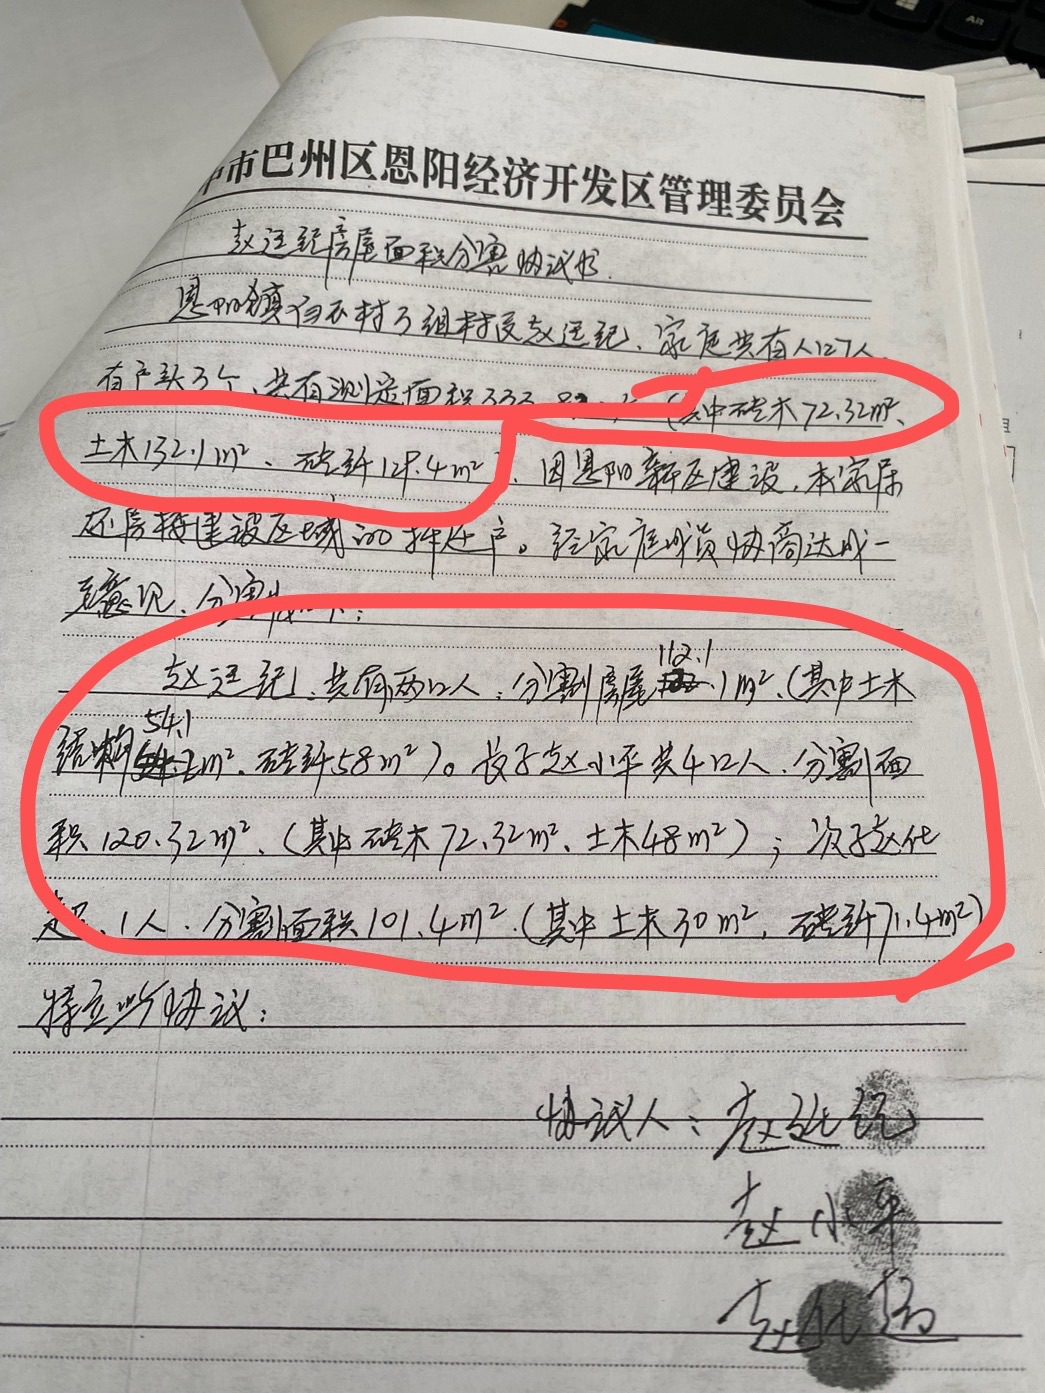 中市巴州区恩阳经济开发区管理委员会
赵廷纪房屋面积分割协议书.
恩阳镇白衣村3组村民赵廷纪、家庭共有人口7人、
有户头3个、共有测定面积333.82 (其中砖木72.32m²、
土木132.1m²、砖纤129.4m²、因恩阳新区建设,本家庭
还房接建设区域的拆迁户。经家庭成员协商达成一
意见、分割如下:
赵廷纪、共有两口人、分割房屋112.1m²、(其中土木
结构54.1m²、砖纤58m²)。长子赵小平共4口人、分割面
积120.32m²、(其中砖木72.32m²、土木48m²);次子赵化
1人、分割面积101.4m².(其中土木30m²,砖纤71.4m²)
特立此协议:
协议人:赵廷纪
赵小平
赵化
Alt